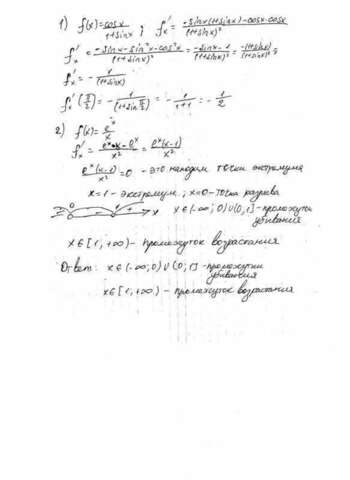 1) f(x) = cosx / (1+sinx) ; f'x = (-sinx(1+sinx) - cosx·cosx) / (1+sinx)²
f'x = (-sinx - sin²x - cos²x) / (1+sinx)² = (-sinx - 1) / (1+sinx)² = -(1+sinx) / (1+sinx)² ;
f'x = - 1 / (1+sinx)
f'x (π/2) = - 1 / (1+sin π/2) = - 1 / (1+1) = - 1/2
2) f(x) = e^x / x
f'x = (e^x·x - e^x) / x² = e^x(x-1) / x²
e^x(x-1) / x² = 0 - это находим точки экстремума
x=1 - экстремум ; x=0 - точка разрыва
- 0 - 1 + x x∈(-∞; 0)∪(0, 1] - промежутки
убывания
x∈[1, +∞) - промежуток возрастания
Ответ: x∈(-∞; 0)∪(0; 1] - промежутки
убывания
x∈[1, +∞) - промежуток возрастания